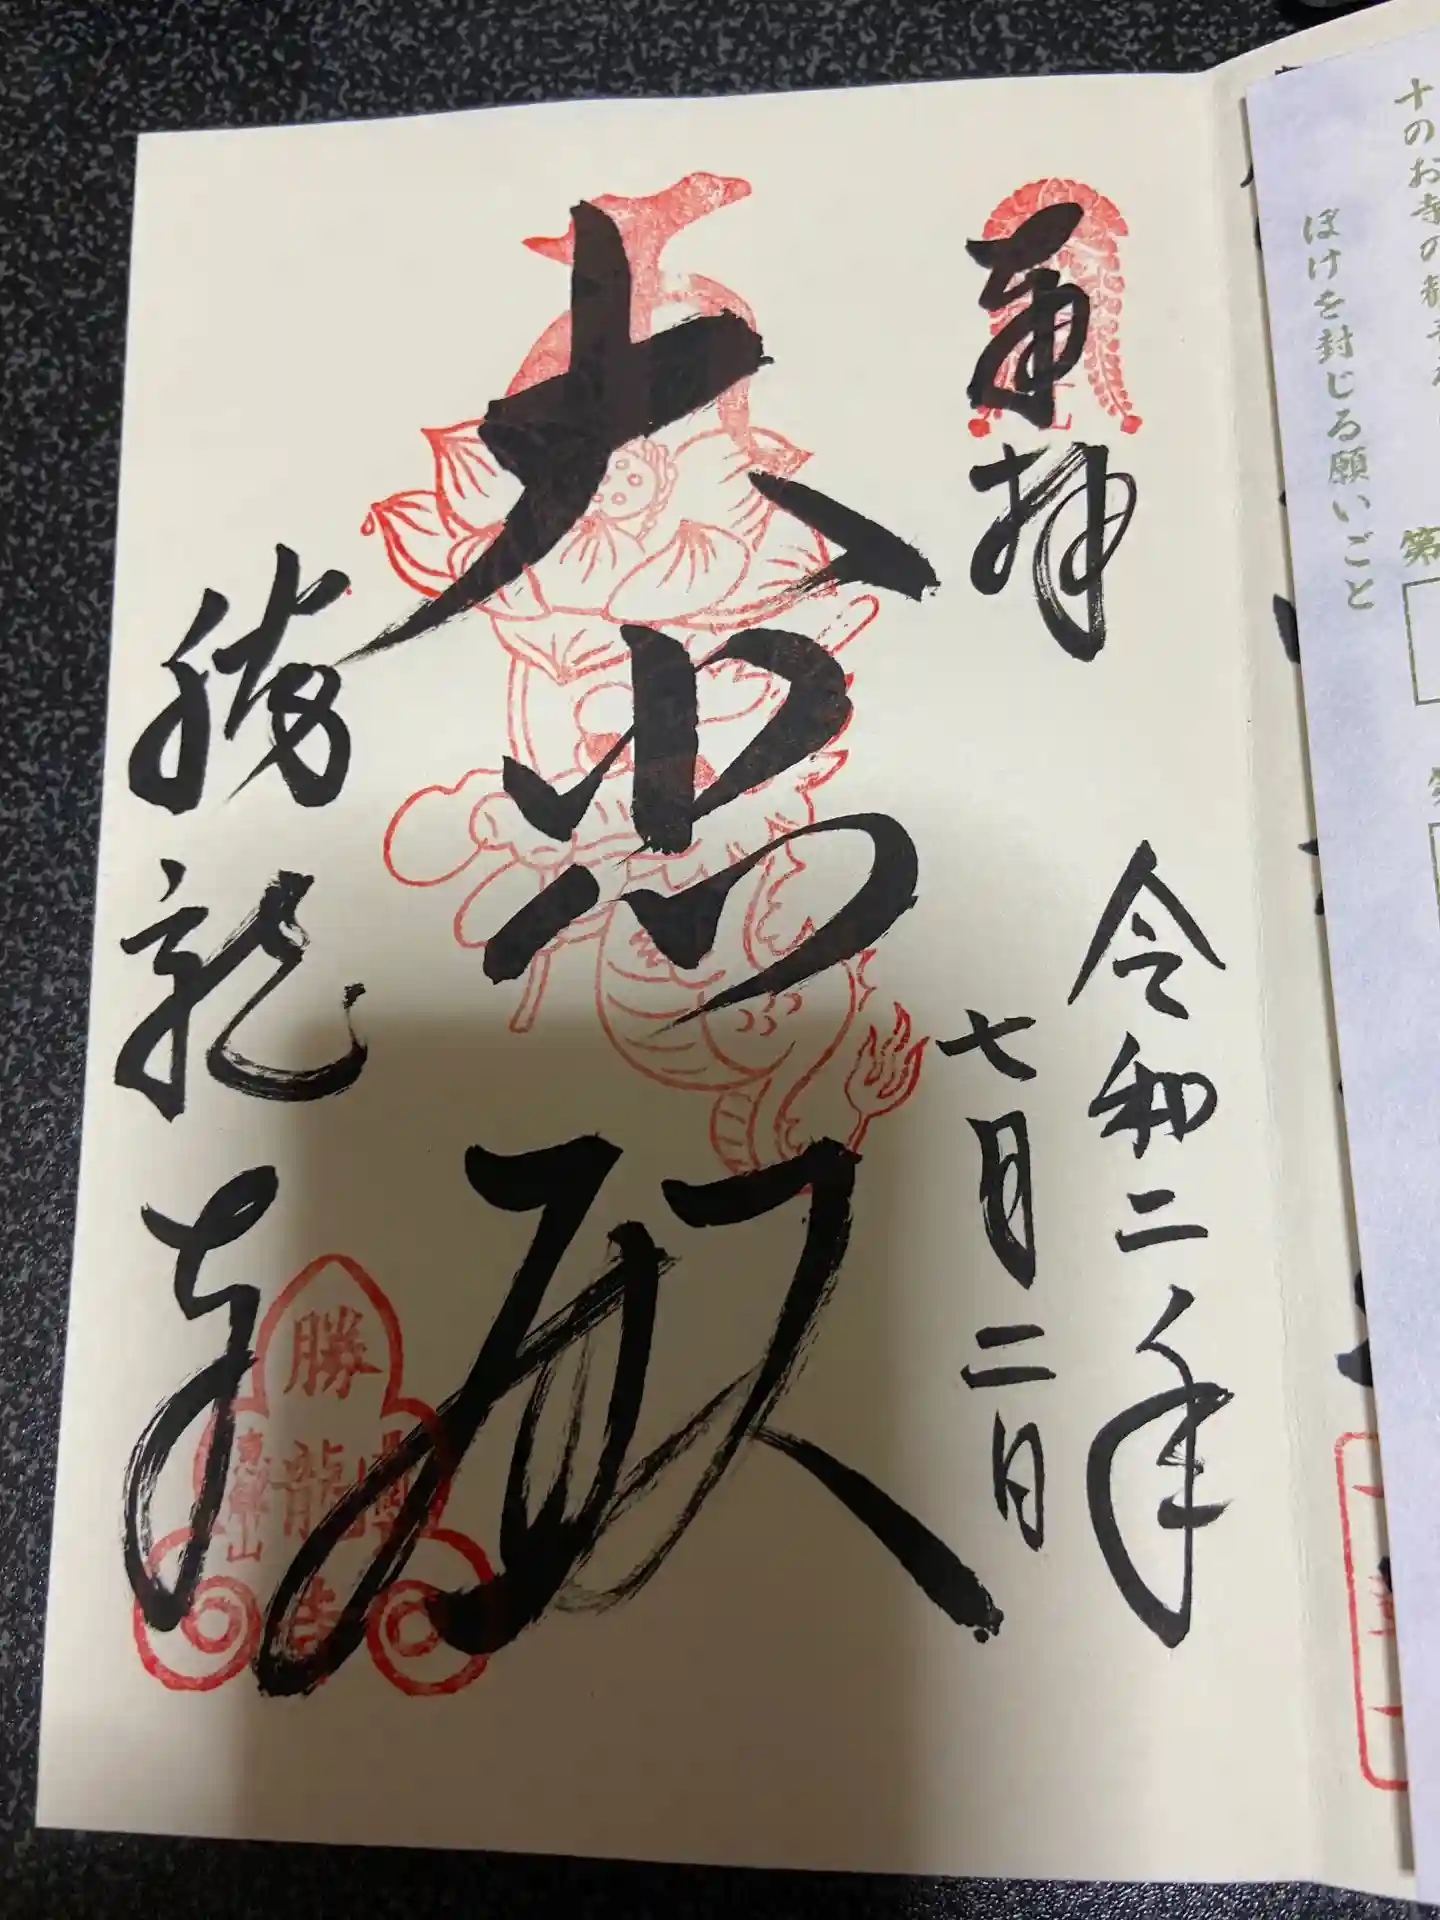 十のお寺の
ぼけを封じる願いごと
第
奉拝
令和二年
七月二日
大悲殿
勝龍寺
勝
龍
寺
山